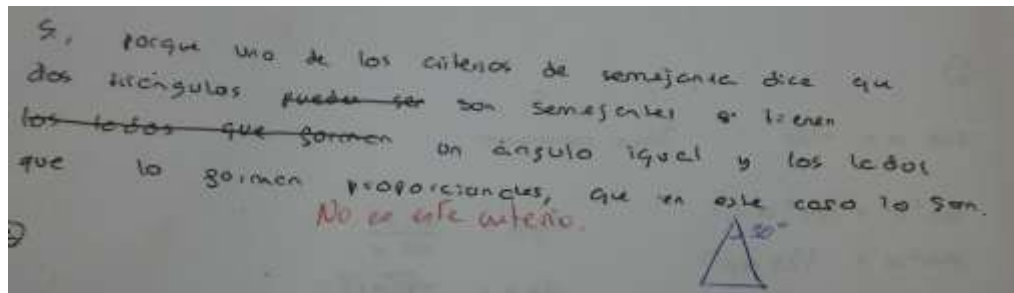 Sí, porque uno de los criterios de semejanza dice que
dos triángulos pueden ser son semejantes si tienen
los lados que forman un ángulo igual y los lados
que lo forman proporcionales, que en este caso lo son.
No es este criterio.
50°